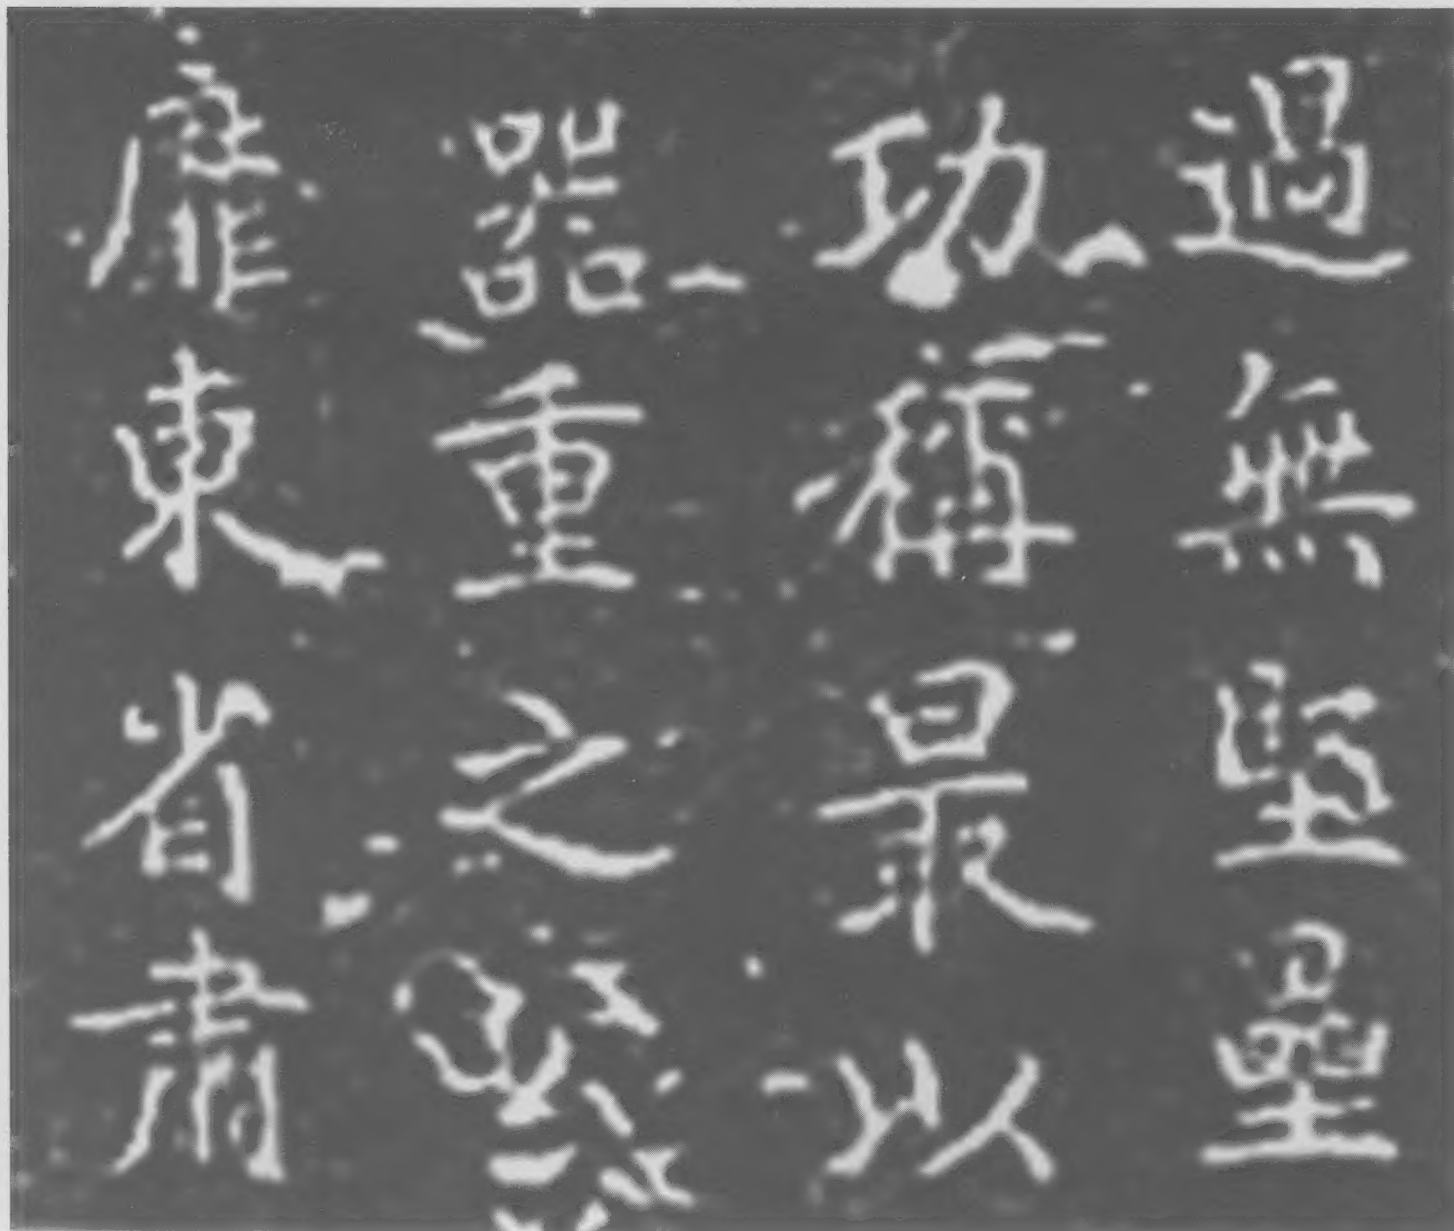 過無堅壘
功稱最以
器重之
雁東省肅